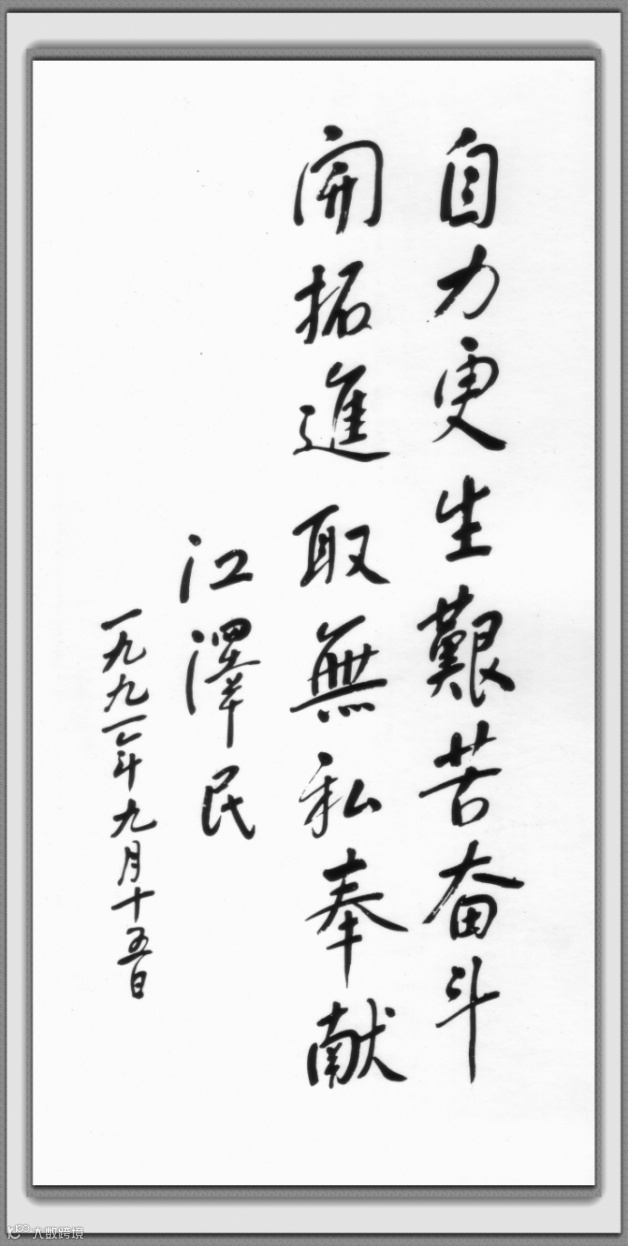 自力更生艱苦奋斗
開拓進取無私奉献
江澤民
一九九一年九月十五日
大数跨境